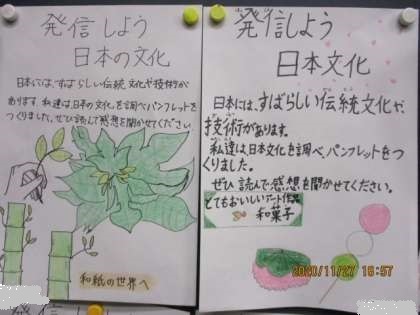 発信しよう
日本の文化
日本には、すばらしい伝統文化や技術が
あります。私達は日本の文化を調べパンフレットを
つくりました。ぜひ読んで感想を聞かせてください。
和紙の世界へ
発信しよう
日本文化
日本には、すばらしい伝統文化や、
技術があります。
私達は、日本文化を調べ、パンフレットをつ
くりました。
ぜひ 読んで感想を聞かせてください。
とてもおいしいアート作品
和菓子
2020/11/27 16:57